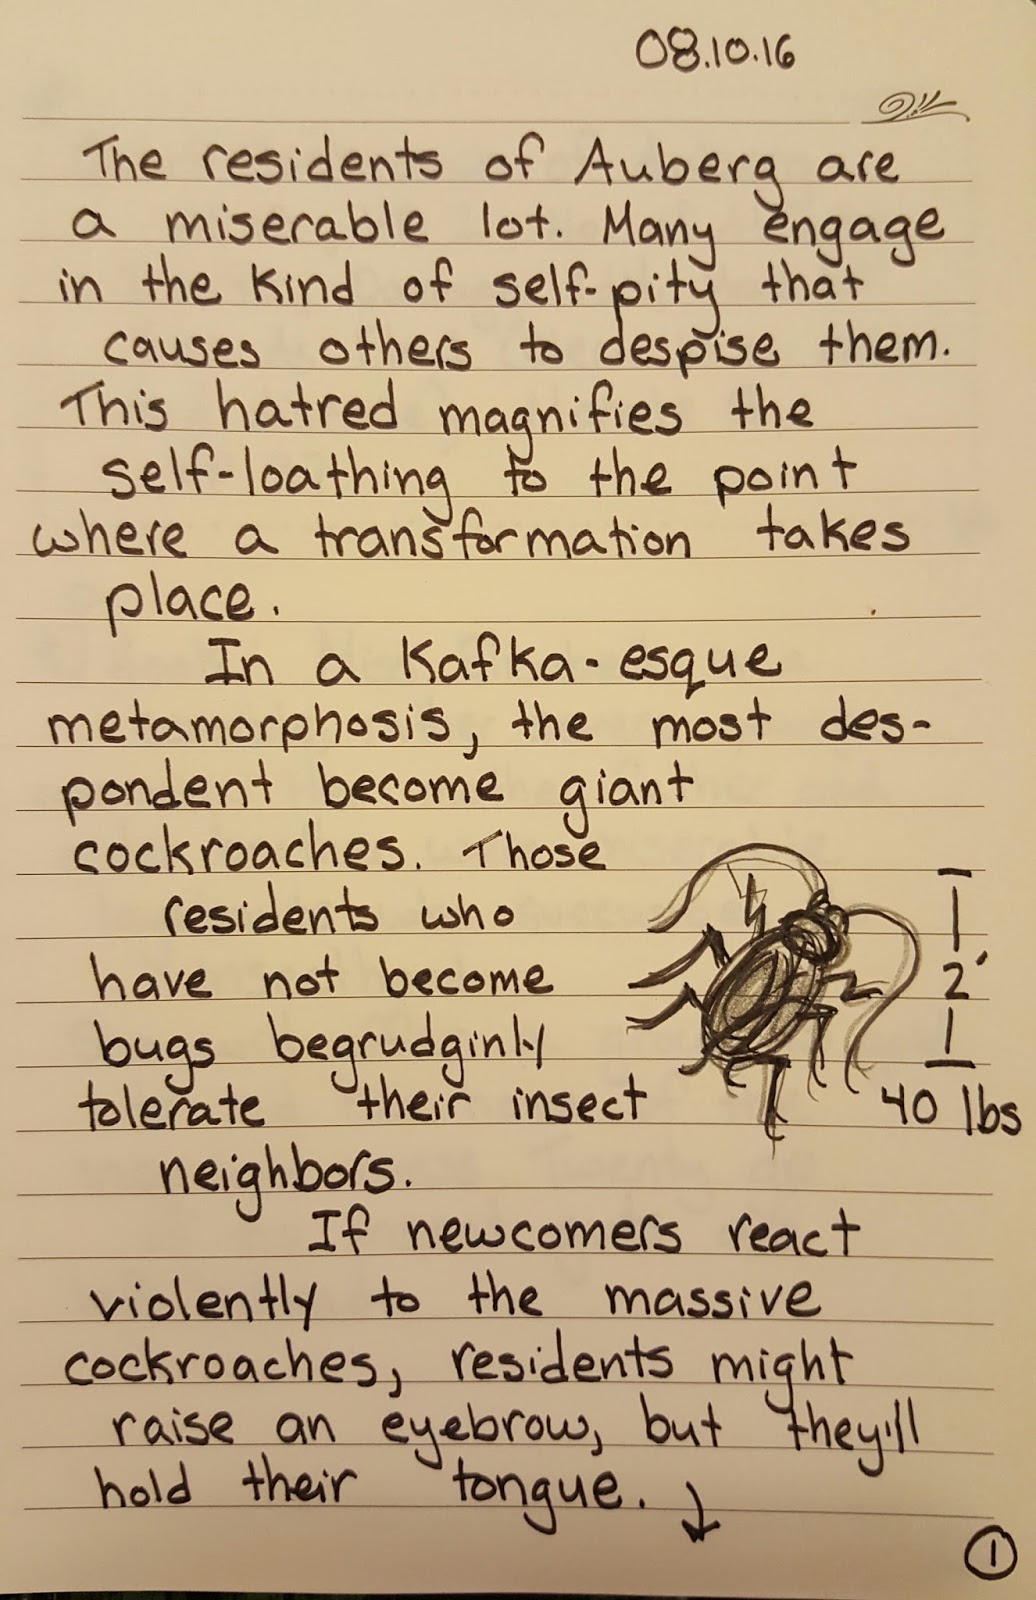 08.10.16
The residents of Auberg are
a miserable lot. Many engage
in the kind of self-pity that
causes others to despise them.
This hatred magnifies the
self-loathing to the point
where a transformation takes
place.
In a Kafka-esque
metamorphosis, the most des-
pondent become giant
cockroaches. Those
residents who
have not become
bugs begrudginly
tolerate their insect
neighbors.
2'
40 lbs
If newcomers react
violently to the massive
cockroaches, residents might
raise an eyebrow, but they'll
hold their tongue. ↓
1